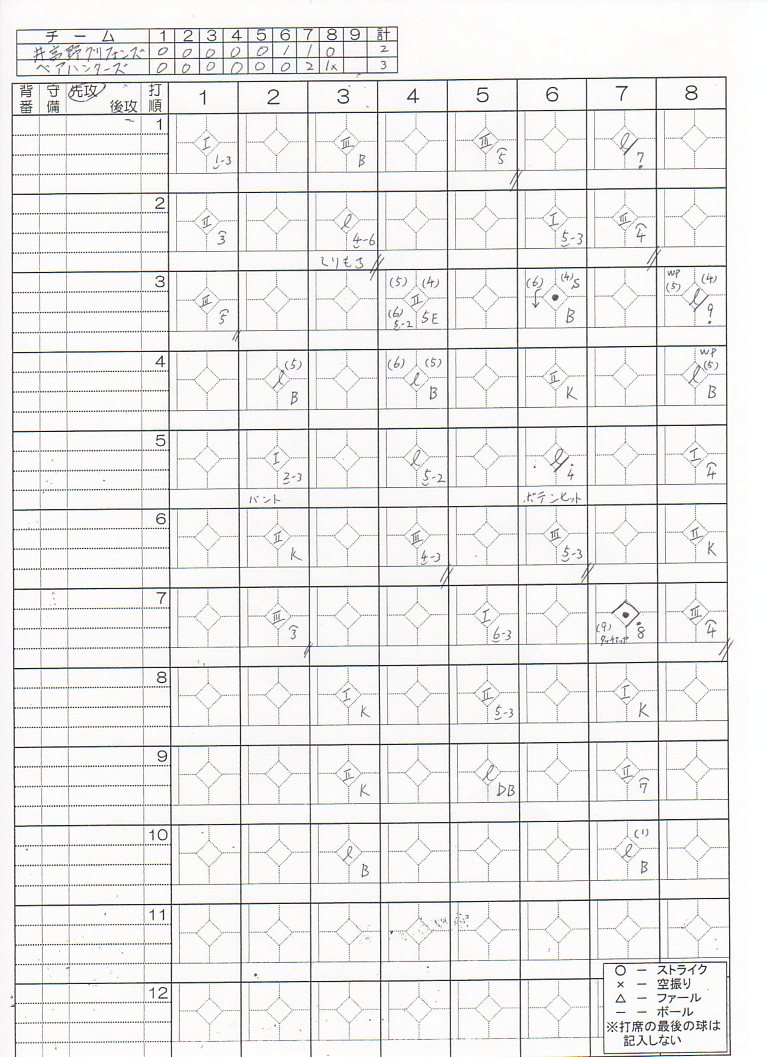 チーム 1 2 3 4 5 6 7 8 9 計
井高野グリフォンズ 0 0 0 0 0 1 1 0 2
ベアハンターズ 0 0 0 0 0 0 2 1x 3
背番 守備 先攻 後攻 打順 1 2 3 4 5 6 7 8
1 I 1-3 III B III 5 l 7
2 II 3 l 4-6 I 5-3 III 4
しりもち
3 III 5 (5) (4) II (6) 5-2 5E (6) (4) S B WP (5) (4) l 9
4 l (5) B (6) (5) l B II K WP (5) l B
5 I 2-3 l 5-2 l 4 I 4
バント ボテンヒット
6 II K III 4-3 III 5-3 II K
7 III 3 I 6-3 (9) 8 III 4
8 I K II 5-3 I K
9 II K l DB II 7
10 l B l (1) B
11
12
○ ー ストライク
× ー 空振り
△ ー ファール
ー ー ボール
※打席の最後の球は
記入しない